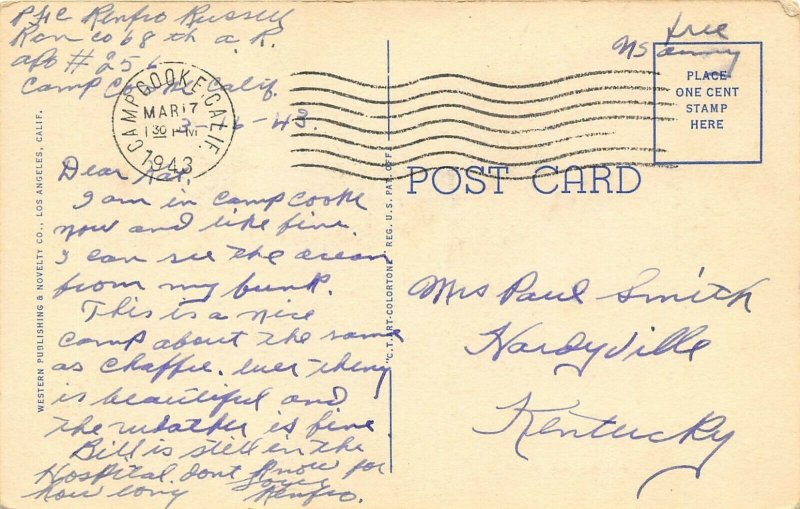 Pfc Renfro Russell
Rcn co 68 th a. R.
apo # 256
Camp Cooke Calif.
CAMP COOKE CALIF.
MAR 17
1 30 PM
1943
3-16-43.
Dear Kat,
I am in camp cooke
now and like fine.
I can see the ocean
from my bunk.
This is a nice
camp about the same
as Chaffee. ever thing
is beautiful and
the weather is fine
Bill is still in the
Hospital. dont know for
how long
Love
Renfro.
WESTERN PUBLISHING & NOVELTY CO., LOS ANGELES, CALIF.
"C.T. ART-COLORTONE" REG. U.S. PAT. OFF.
POST CARD
free
US army
PLACE
ONE CENT
STAMP
HERE
Mrs Paul Smith
Hardyville
Kentucky